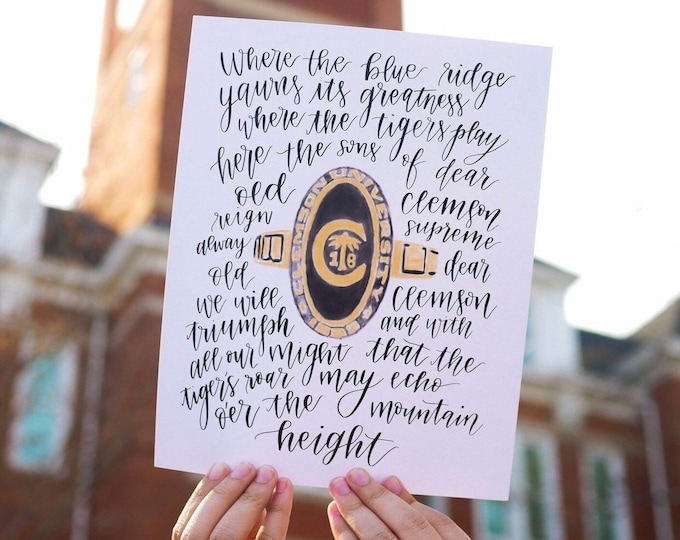 Where the blue ridge
yawns its greatness
where the tigers play
here the sons of dear
old Clemson
reign supreme
alway dear
old Clemson
we will
triumph and with
all our might that the
tiger's roar may echo
o'er the mountain
height
CLEMSON UNIVERSITY
C
18